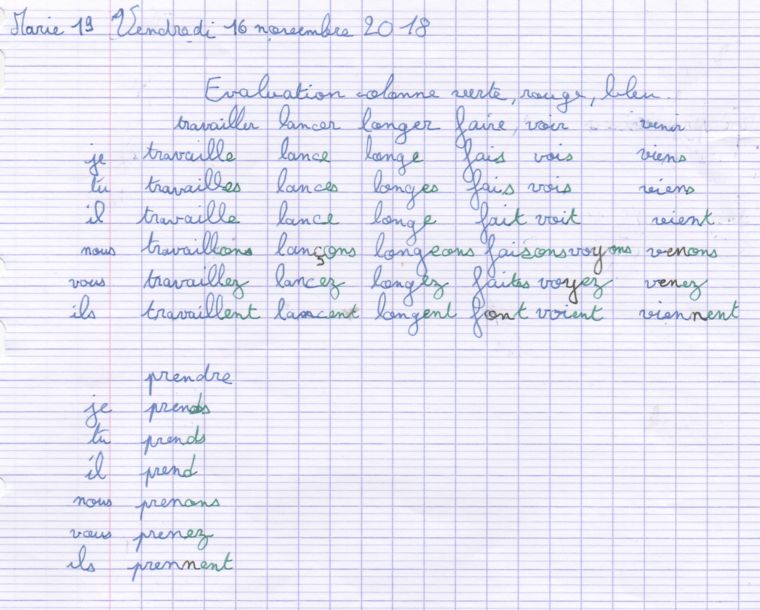 Marie 19 Vendredi 16 novembre 2018
Evaluation colonne verte, rouge, bleu.
travailler lancer longer faire, voir venir
je travaille lance longe fais vois viens
tu travailles lances longes fais vois viens
il travaille lance longe fait voit vient
nous travaillons lançons longeons faisons voyons venons
vous travaillez lancez longez faites voyez venez
ils travaillent lancent longent font voient viennent
prendre
je prends
tu prends
il prend
nous prenons
vous prenez
ils prennent